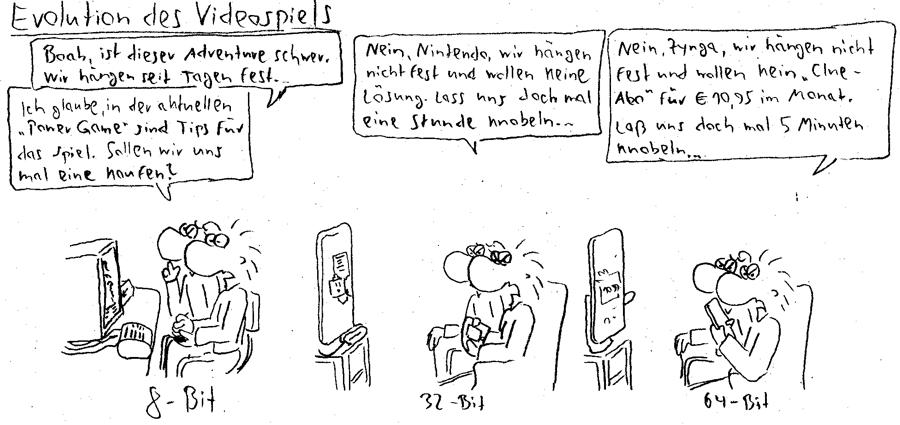 Evolution des Videospiels
Boah, ist dieser Adventure schwer.
Wir hängen seit Tagen fest...
Ich glaube, in der aktuellen
„Power Game" sind Tips für
das Spiel. Sollen wir uns
mal eine kaufen?
Nein, Nintendo, wir hängen
nicht fest und wollen keine
Lösung. Lass uns doch mal
eine Stunde knobeln...
Nein, Zynga, wir hängen nicht
fest und wollen kein „Clue-
Abo" für € 10,95 im Monat.
Laß uns doch mal 5 Minuten
knobeln...
8-Bit
32-Bit
64-Bit